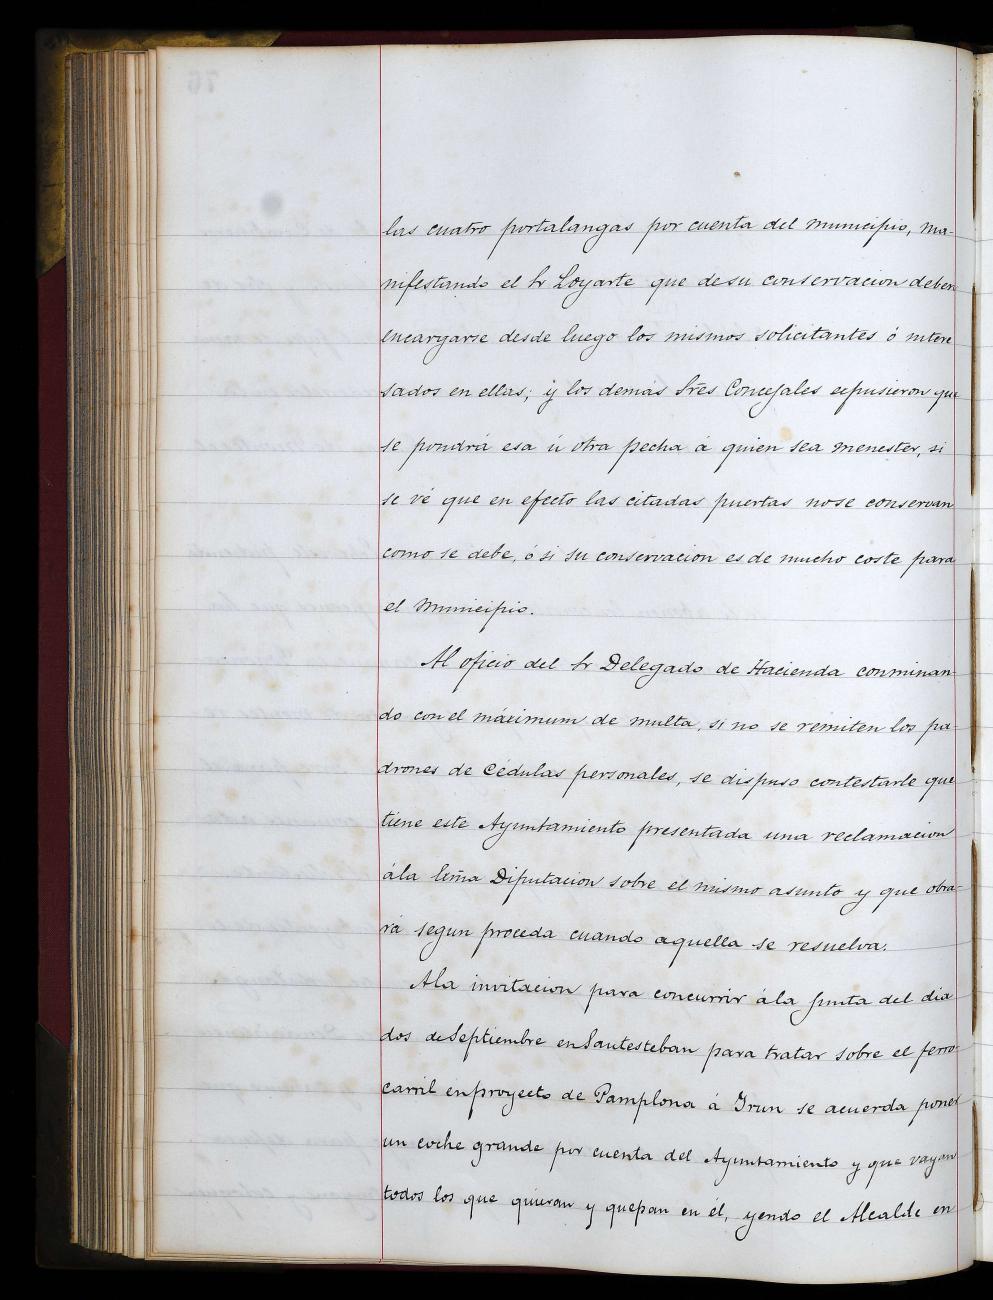 las cuatro portalangas por cuenta del Municipio, ma-
nifestando el Sr Loyarte que de su conservacion deben
encargarse desde luego los mismos solicitantes ó intere
sados en ellas; y los demás Sres Concejales expusieron que
se pondrá esa ú otra pecha á quien sea menester, si
se vé que en efecto las citadas puertas no se conservan
como se debe, ó si su conservacion es de mucho coste para
el Municipio.
Al oficio del Sr Delegado de Hacienda conminan-
do con el máximum de multa, si no se remiten los pa-
drones de Cédulas personales, se dispuso contestarle que
tiene este Ayuntamiento presentada una reclamacion
á la Excma Diputacion sobre el mismo asunto y que obra-
rá segun proceda cuando aquella se resuelva.
A la invitacion para concurrir á la Junta del dia
dos de Septiembre en Santesteban para tratar sobre el ferro-
carril en proyecto de Pamplona á Irun se acuerda poner
un coche grande por cuenta del Ayuntamiento y que vayan
todos los que quieran y quepan en él, yendo el Alcalde en